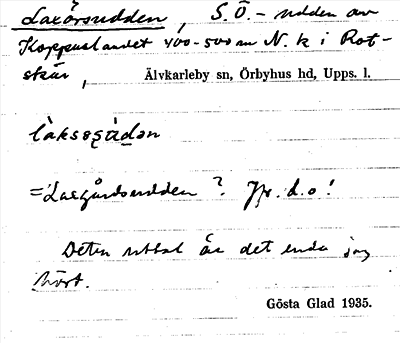 Laxörsudden, S.Ö.-udden av
Koppuslandet 400-500 m N. k i Rot-
skär, Älvkarleby sn, Örbyhus hd, Upps. l.
làksegàdən
= Laxgårdsudden? Jfr. d.o!
Detta uttal är det enda jag
hört.
Gösta Glad 1935.